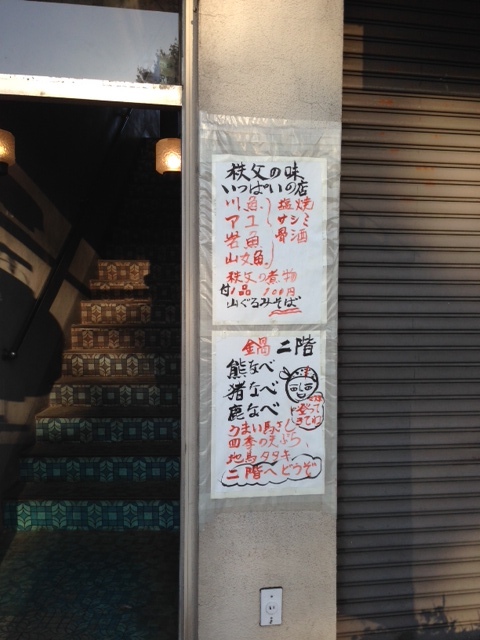 秩父の味
いっぱいの店
川魚 塩焼
アユ サシミ
岩魚 骨酒
山女魚
秩父の煮物
付1品 100円
山ぐるみそば
鍋 二階
熊なべ
猪なべ
鹿なべ
うまい馬さし
四季の天ぷら
地鳥タタキ
二階へどうぞ